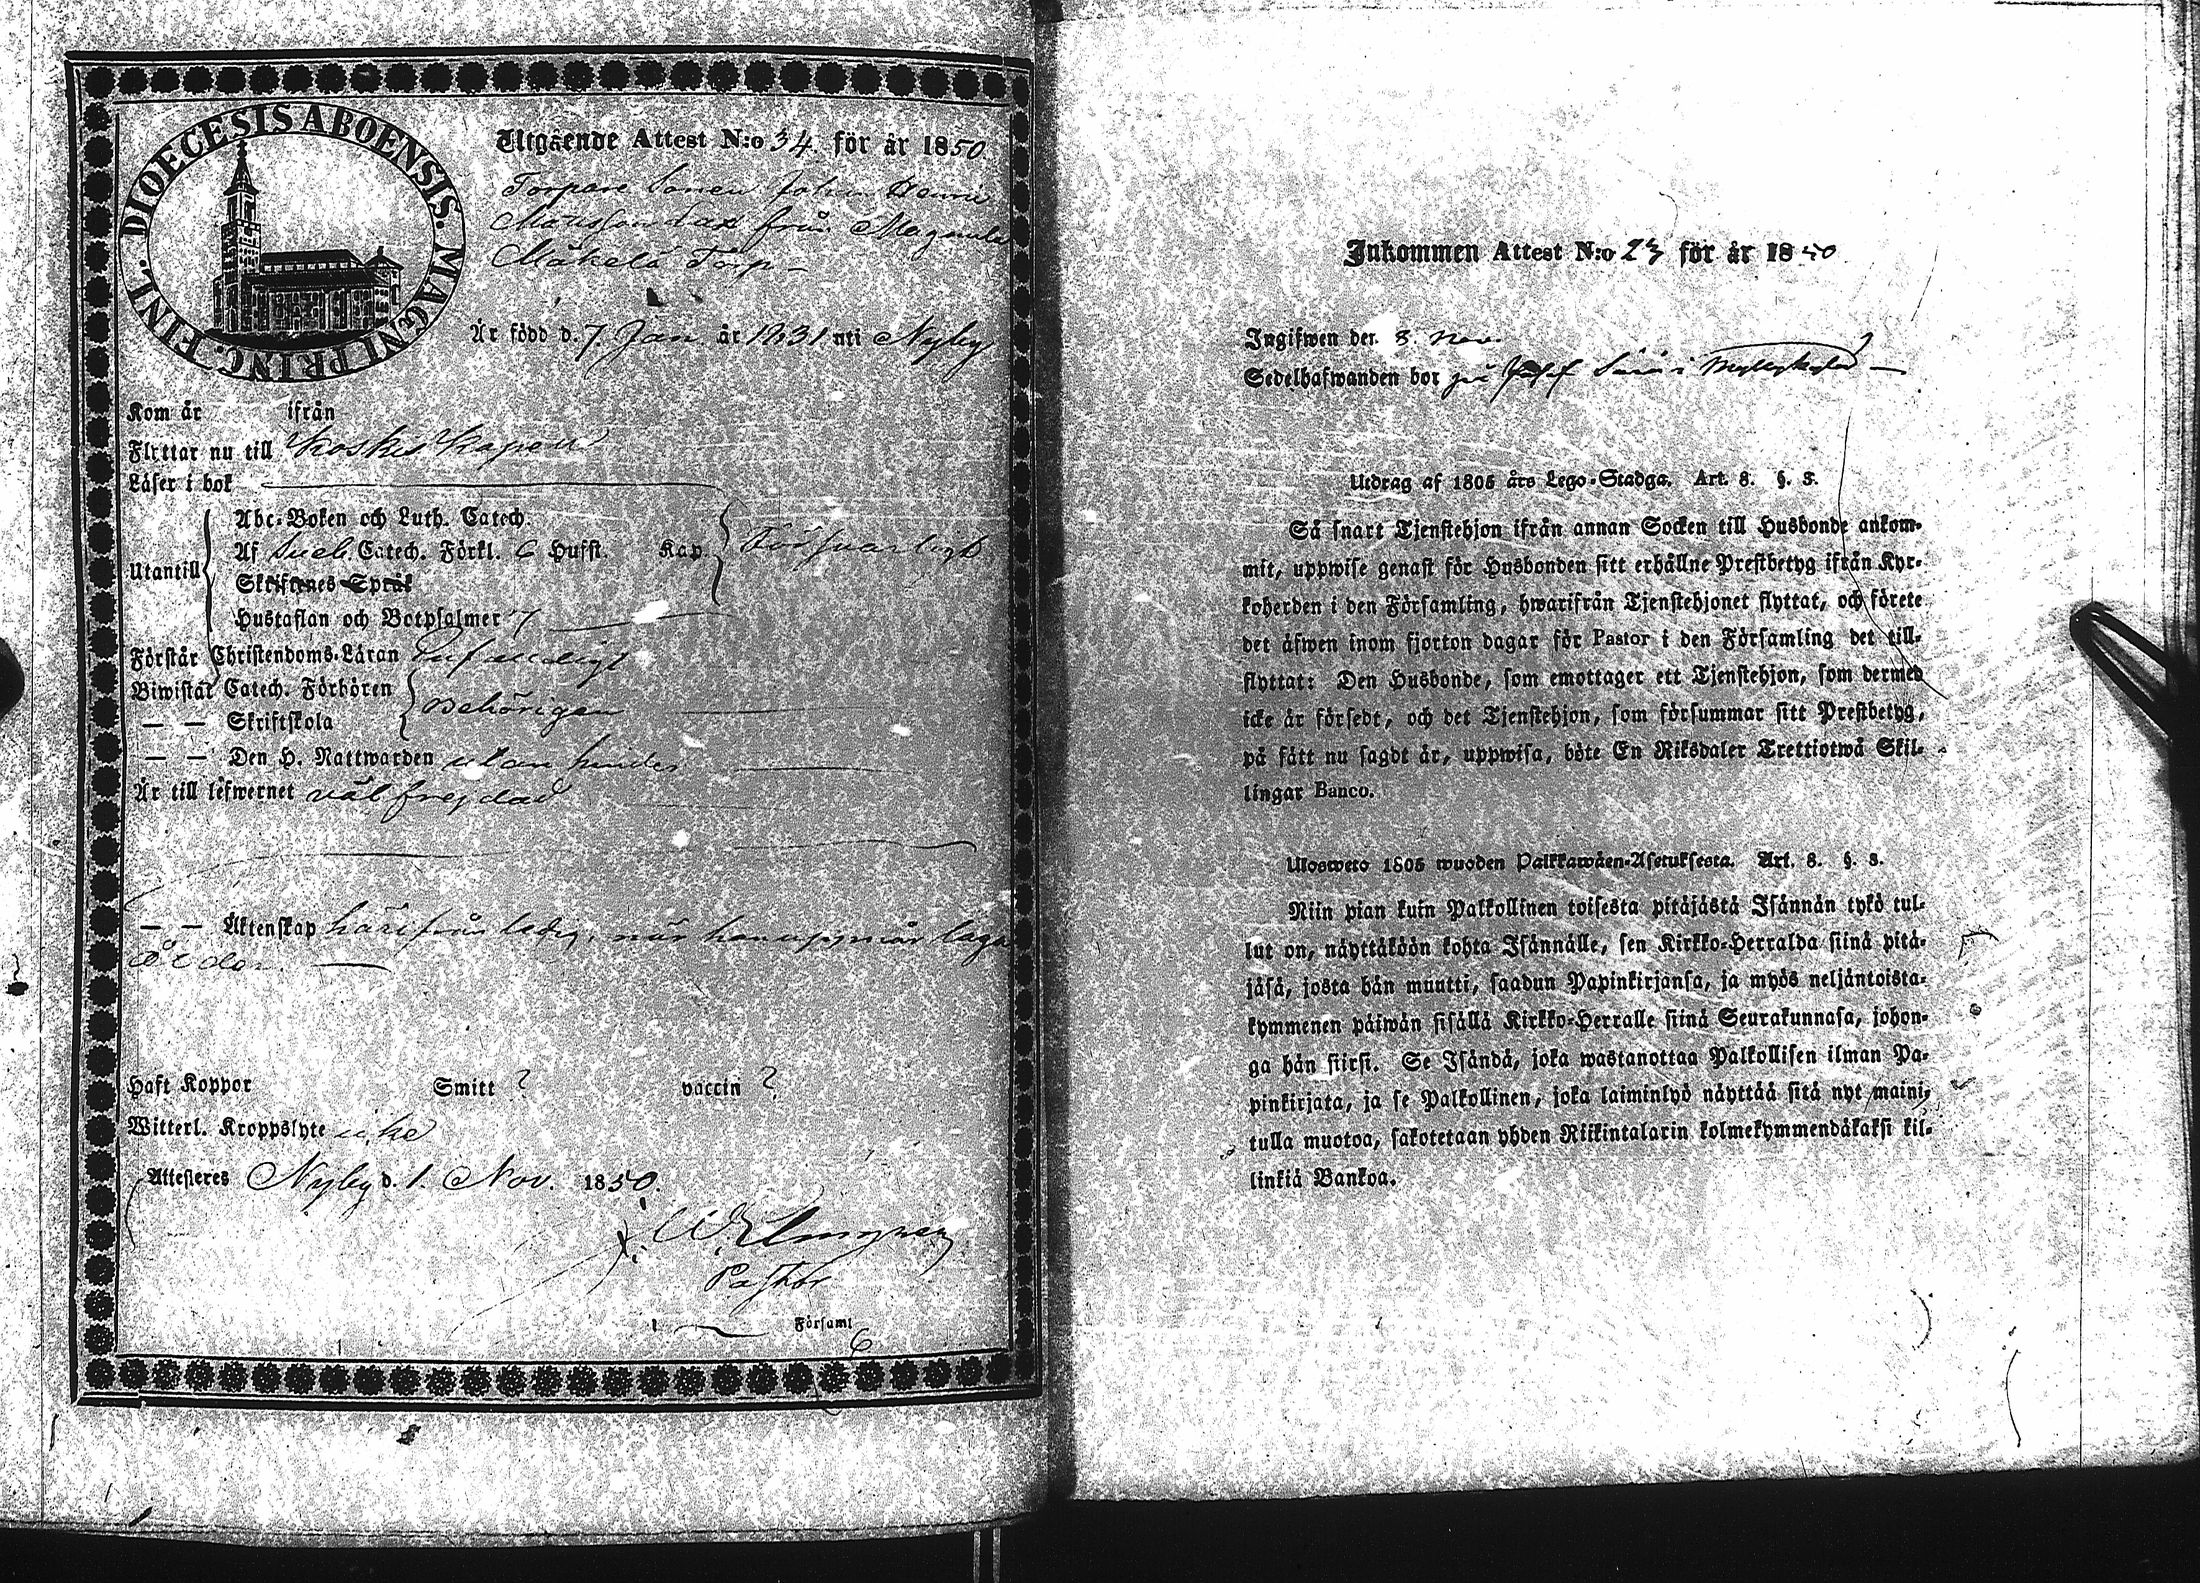 DIOECESIS ABOENSIS. MAGNI PRINC. FINL.
Utgående Attest N:o 34. för år 1850
Torpare Sonen Johan Henric
Månsson från
Mäkelä Torp
Är född d. 7. Jan år 1831 uti Nyby
Kom år ifrån
Flyttar nu till Koskis Kapell
Läser i bok
Utantill
Abc-Boken och Luth. Catech.
Af Sueb. Catech. Förkl. 6 Hufst. Kap. Försvarligt
Skriftenes Språk
Hustaflan och Botpsalmer 7
Förstår Christendoms-Läran
Biwistat Catech. Förhören
— — Skriftskola Behörigen
— — Den H. Nattwarden utan hinder
Är till lefwernet väl frejdad
— — Äktenskap härifrån ledig, när han uppnår laga
ålder.
Haft Koppor Smitt ? vaccin ?
Witterl. Kroppslyte icke
Attesteras Nyby d. 1. Nov. 1850.
Pastor
i Församl
6
Inkommen Attest N:o 23 för år 1850
Ingifwen den 8. Nov.
Sedelhafwanden bor på Josef i Myllykylä
Utdrag af 1805 års Lego-Stadga. Art. 8. §. 3.
Så snart Tjenstehjon ifrån annan Socken till Husbonde ankom-
mit, uppwise genast för Husbonden sitt erhållne Prestbetyg ifrån Kyr-
koherden i den Församling, hwarifrån Tjenstehjonet flyttat, och förete
det äfwen inom fjorton dagar för Pastor i den Församling det till-
flyttat: Den Husbonde, som emottager ett Tjenstehjon, som dermed
icke är försedt, och det Tjenstehjon, som försummar sitt Prestbetyg,
på sätt nu sagdt är, uppwisa, böte En Riksdaler Trettiotwå Skil-
lingar Banco.
Ulosweto 1805 wuoden Palkkawäen-Asetuksesta. Art. 8. §. 3.
Niin pian kuin Palkollinen toisesta pitäjästä Isännän tykö tul-
lut on, näyttäköön kohta Isännälle, sen Kirkko-Herralda siinä pitä-
jäsä, josta hän muutti, saadun Papinkirjansa, ja myös neljäntoista-
kymmenen päiwän sisällä Kirkko-Herralle siinä Seurakunnasa, johon-
ga hän siirsi. Se Isändä, joka wastanottaa Palkollisen ilman Pa-
pinkirjata, ja se Palkollinen, joka laiminlyö näyttää sitä nyt maini-
tulla muotoa, sakotetaan yhden Riikintalarin kolmekymmendäkaksi kil-
linkiä Bankoa.